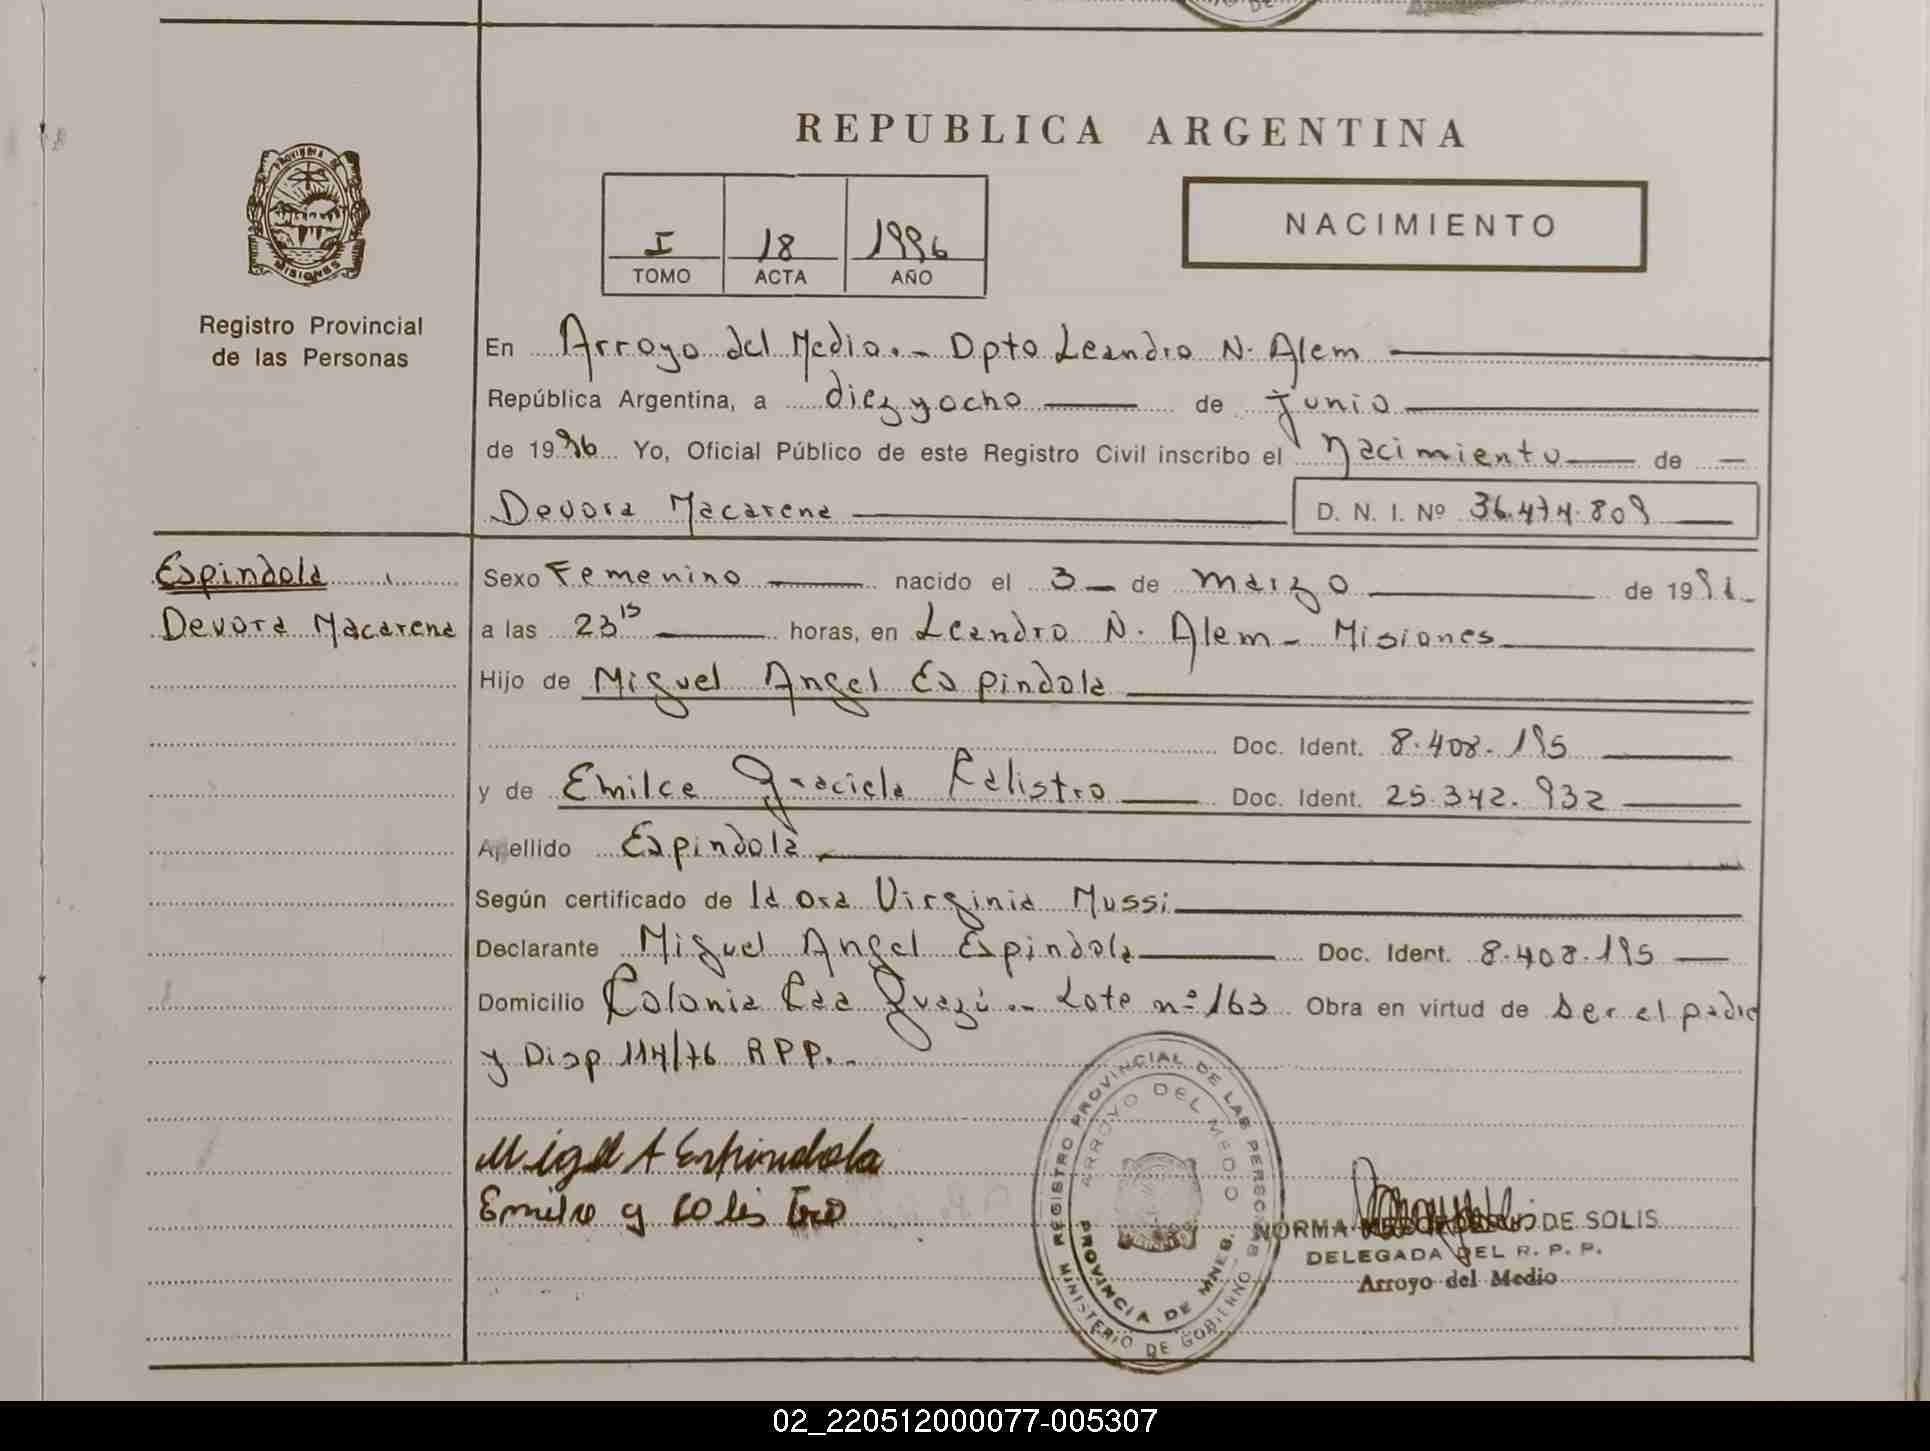 REPUBLICA ARGENTINA
NACIMIENTO
I 18 1996
TOMO ACTA AÑO
PROVINCIA DE
MISIONES
Registro Provincial
de las Personas
En Arroyo del Medio.- Dpto Leandro N. Alem
República Argentina, a diez y ocho de junio
de 1996 Yo, Oficial Público de este Registro Civil inscribo el Nacimiento de
Devora Macarena D. N. I. Nº 36.474.809
Espindola
Devora Macarena
Sexo Femenino nacido el 3 de marzo de 199
a las 23 15 horas, en Leandro N. Alem - Misiones
Hijo de Miguel Angel Espindola
Doc. Ident. 8.408.195
y de Emilce Graciela Calistro Doc. Ident. 25.342.932
Apellido Espindola
Según certificado de la Virginia Mussi
Declarante Miguel Angel Espindola Doc. Ident. 8.408.195
Domicilio Colonia Caa Guazú.- Lote nº 163 Obra en virtud de ser el padre
y Disp 114/76 RPP.-
REGISTRO PROVINCIAL DE LAS PERSONAS
ARROYO DEL MEDIO
PROVINCIA DE MNES.
MINISTERIO DE GOBIERNO
Migel A Espindola
NORMA DE SOLIS
DELEGADA DEL R. P. P.
Arroyo del Medio
02_220512000077-005307